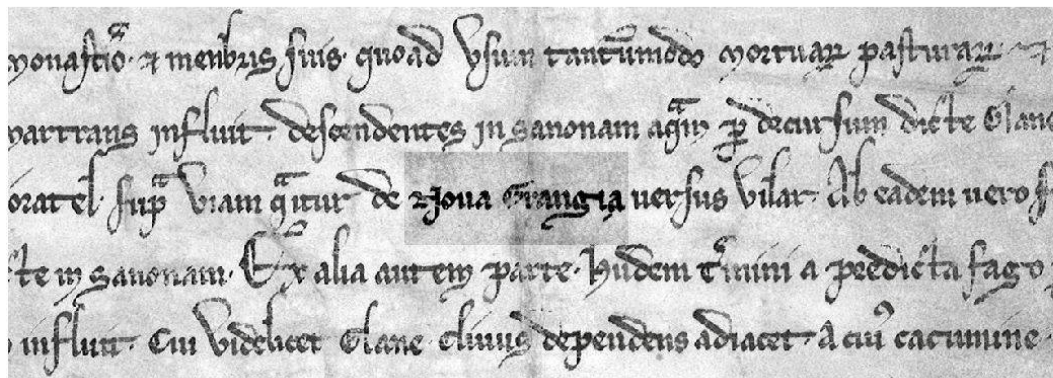 monast͛io᷒ · ⁊ menbris suis · quoad Vsum tantu᷒modo mortuaꝝ pasturaꝝ · ⁊
martrans influit descendentes in sanonam aqᷓm ꝑ decursum dicte Glane
oratel · supᷓ viam qᷓ itur de Noua Grangia uersus vilar · Ab eadem uero
cte in sanonam · Ex alia autem parte · Hiidem t᷒mini a predicta fago
influit · Cui Videlicet Glane cliuus dependens adiacet · A cui᷒ cacumine ·